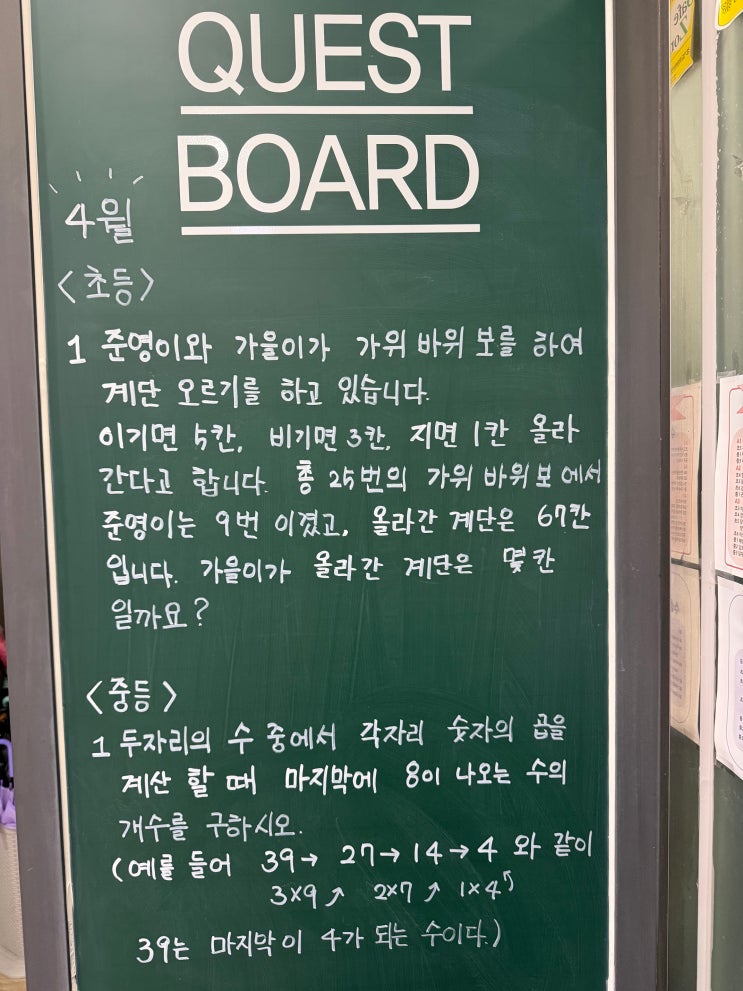 QUEST
BOARD
4월
<초등>
1 준영이와 가을이가 가위 바위 보를 하여
계단 오르기를 하고 있습니다.
이기면 5칸, 비기면 3칸, 지면 1칸 올라
간다고 합니다. 총 25번의 가위 바위 보에서
준영이는 9번 이겼고, 올라간 계단은 67칸
입니다. 가을이가 올라간 계단은 몇 칸
일까요?
<중등>
1 두자리의 수 중에서 각자리 숫자의 곱을
계산 할 때 마지막에 8이 나오는 수의
개수를 구하시오.
(예를 들어 39→ 27→14→4 와 같이
3×9↗ 2×7↗ 1×4↗
39는 마지막이 4가 되는 수이다.)